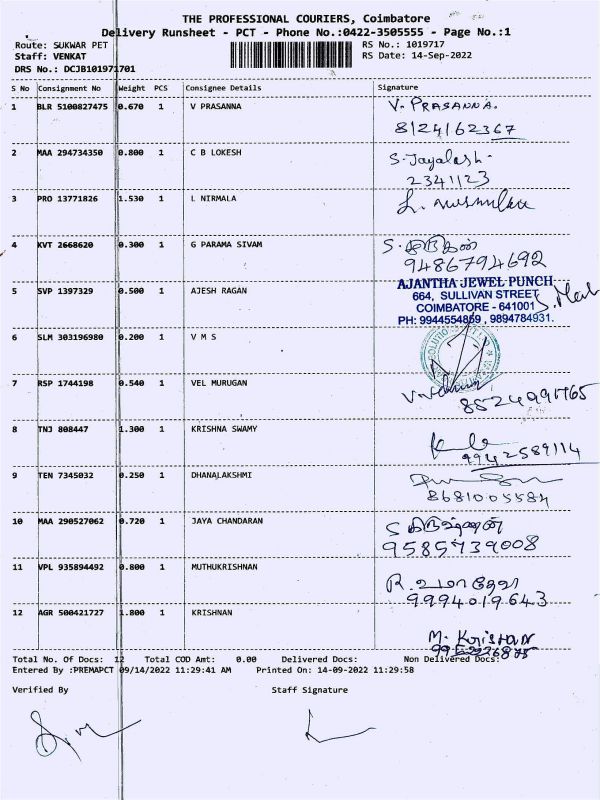 THE PROFESSIONAL COURIERS, Coimbatore
Delivery Runsheet - PCT - Phone No.:0422-3505555 - Page No.:1
Route: SUKWAR PET RS No.: 1019717
Staff: VENKAT RS Date: 14-Sep-2022
DRS No.: DCJB101971701
S No Consignment No Weight PCS Consignee Details Signature
1 BLR 5100827475 0.670 1 V PRASANNA V. PRASANNA.
8124162367
2 MAA 294734350 0.800 1 C B LOKESH S. Jayalash.
2341123
3 PRO 13771826 1.530 1 L NIRMALA
4 KVT 2668620 0.300 1 G PARAMA SIVAM
9486794692
AJANTHA JEWEL PUNCH
5 SVP 1397329 0.500 1 AJESH RAGAN 664, SULLIVAN STREET
COIMBATORE - 641001
PH: 9944554859 , 9894784931.
6 SLM 303196980 0.200 1 V M S
7 RSP 1744198 0.540 1 VEL MURUGAN
8 TNJ 808447 1.300 1 KRISHNA SWAMY
9942589114
9 TEN 7345032 0.250 1 DHANALAKSHMI
8681005584
10 MAA 290527062 0.720 1 JAYA CHANDARAN
9585739008
11 VPL 935894492 0.800 1 MUTHUKRISHNAN
9994019643
12 AGR 500421727 1.800 1 KRISHNAN
Total No. Of Docs: 12 Total COD Amt: 0.00 Delivered Docs: Non Delivered Docs:
Entered By :PREMAPCT 09/14/2022 11:29:41 AM Printed On: 14-09-2022 11:29:58
Verified By Staff Signature